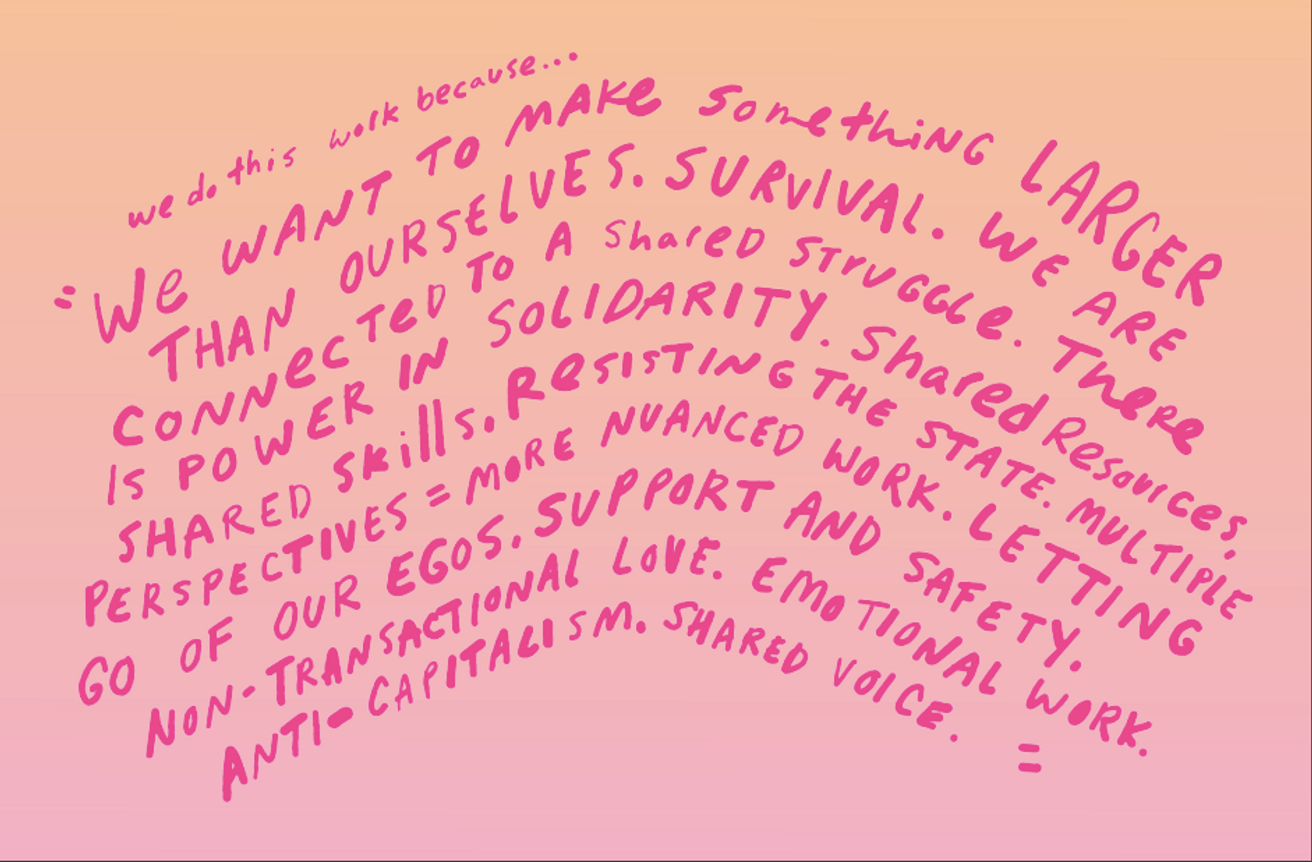 we do this work because...
"We WANT TO MAKe something LARGER
THAN OURSELVES. SURVIVAL. WE ARE
CONNecTeD TO A shareD STrUGGLe. THeRe
IS POWER IN SOLIDARITY. Shared Resources,
SHARED Skills. ReSISTING THE STATE. MULTIPLE
PERSPECTIVES = MORE NUANCED WORK. LETTING
GO OF OUR EGOS. SUPPORT AND SAFETY.
NON-TRANSACTIONAL LOVE. EMOTIONAL WORK.
ANTI-CAPITALISM. SHARED VOICE."